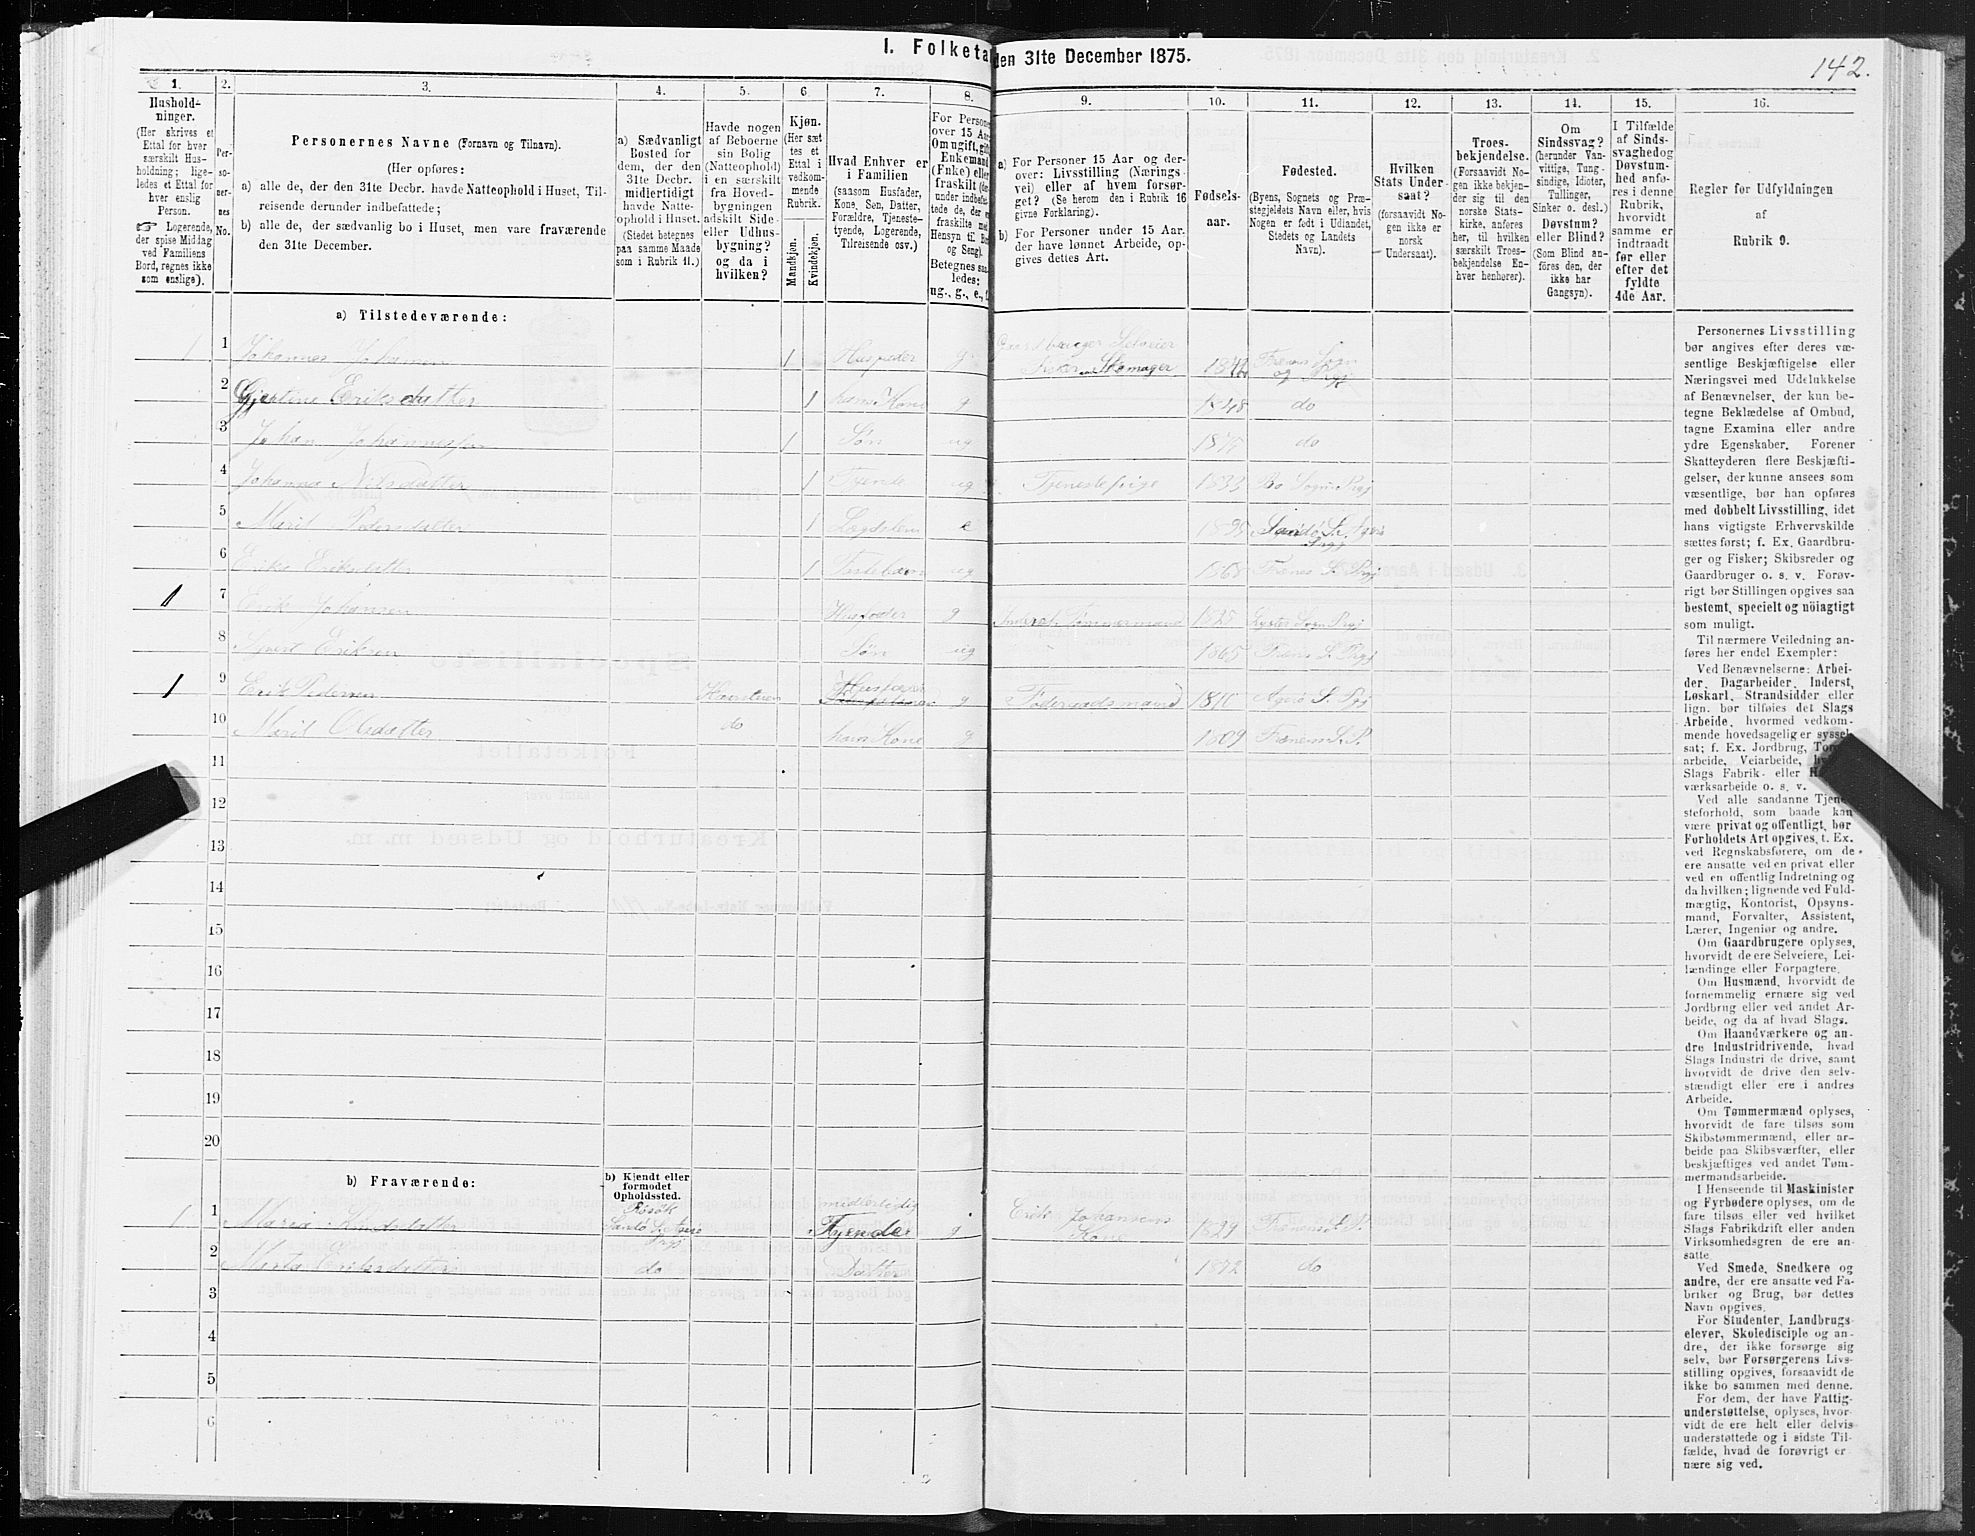 I. Folketa den 31te December 1875.
142.
1.
Hushold-
ninger.
(Her skrives et
Ettal for hver
særskilt Hus-
holdning; lige-
ledes et Ettal for
hver enslig
Person.
☞ Logerende,
der spise Middag
ved Familiens
Bord, regnes ikke
som enslige).
2.
Per-
so-
ner-
nes
No.
3.
Personernes Navne (Fornavn og Tilnavn).
(Her opføres:
a) alle de, der den 31te Decbr. havde Natteophold i Huset, Til-
reisende derunder indbefattede;
b) alle de, der sædvanlig bo i Huset, men vare fraværende
den 31te December.
4.
a) Sædvanligt
Bosted for
dem, der den
31te Decbr.
midlertidigt
havde Natte-
ophold i Huset.
(Stedet betegnes
paa samme Maade
som i Rubrik 11.)
5.
Havde nogen
af Beboerne
sin Bolig
(Natteophold)
i en særskilt
fra Hoved-
bygningen
adskilt Side-
eller Udhus-
bygning?
og da i
hvilken?
6.
Kjøn.
(Her sæt
tes et
Ettal i
vedkom-
mende
Rubrik.
Mandkjøn.
Kvindekjøn.
7.
Hvad Enhver er
i Familien
(saasom Husfader,
Kone, Søn, Datter,
Forældre, Tjeneste-
tyende, Logerende,
Tilreisende osv.)
8.
For Persone
over 15 Aar
Om ugift, gift
Enkemand
(Enke) eller
fraskilt (de
under indbefat
tede de, der e
fraskilte med
Hensyn til. Bo
og Seng).
Betegnes saa
ledes:
ug., g., e., f.
9.
a) For Personer 15 Aar og der-
over: Livsstilling (Nærings-
vei) eller af hvem forsør-
get? (Se herom den i Rubrik 16
givne Forklaring).
b) For Personer under 15 Aar.
der have lønnet Arbeide, op-
gives dettes Art.
10.
Fødsels-
aar.
11.
Fødested.
(Byens, Sognets og Præ-
stegjeldets Navn eller, hvis
Nogen er født i Udlandet,
Stedets og Landets
Navn).
12.
Hvilken
Stats Under-
saat?
(forsaavidt No-
gen ikke er
norsk
Undersaat).
13.
Troes-
bekjendelse.
(Forsaavidt No-
gen ikke bekjen-
der sig til den
norske Stats-
kirke, anføres
her, til hvilken
særskilt Troes-
bekjendelse En-
hver henhører).
14.
Om
Sindssvag?
(herunder Van-
vittige, Tung-
sindige, Idioter,
Tullinger,
Sinker o. desl.)
Døvstum?
eller Blind?
(Som Blind an-
føres den, der
ikke har
Gangsyn).
15.
I Tilfælde
af Sinds-
svaghed og
Døvstum-
hed anfø-
res i denne
Rubrik,
hvorvidt
samme er
indtraadt
før eller
efter det
fyldte
4de Aar.
16.
Regler for Udfyldningen
af
Rubrik 9.
a) Tilstedeværende:
1 1 Johannes Johansen 1 Husfader g Gaardbruger Selveier
Fisker Skomager 1842 Frænes Sogn
og Prgj
2 Gjertine Eriksdatter 1 hans Kone g 1848 do
3 Johan Johannessen 1 Søn ug 1875 do
4 Johanna Nilsdatter 1 Tjende ug Tjenestepige 1833 Bo Sogn Prgj
5 Marit Pedersdatter 1 Lægdslem e Sandø S. Agerø
Prgj
6 Eriks Eriksdatter 1 Fosterbarn ug 1865 Frænes S. Prgj
1 7 Erik Johansen Husfader g Inderst Tømmermand 1825 Sogn Prgj
8 Sivert Eriksen Søn ug 1865 Frænes S. Prgj
1 9 Erik Pedersen Kaarstuen Husfader g Føderaadsmand 1810 Agerø S. Prgj
10 Marit Olsdatter do hans Kone g 1809 Frænes S. P.
11
12
13
14
15
16
17
18
19
20
b) Fraværende:
b) Kjendt eller
formodet
Opholdssted.
1 1 Maria Knudsdatter Røsok
Sandø S. Agerø
Prgj midlertidig
Tjender g Erik Johansens
Kone 1829 Frænes S. P.
2 Merta Eriksdatter do Datter 1872 do
3
4
5
6
Personernes Livsstilling
bør angives efter deres væ-
sentlige Beskjæftigelse eller
Næringsvei med Udelukkelse
af Benævnelser, der kun be-
tegne Beklædelse af Ombud,
tagne Examina eller andre
ydre Egenskaber. Forener
Skatteyderen flere Beskjæfti-
gelser, der kunne ansees som
væsentlige, bør han opføres
med dobbelt Livsstilling, idet
hans vigtigste Erhvervskilde
sættes først; f. Ex. Gaardbru-
ger og Fisker; Skibsreder og
Gaardbruger o. s. v. Forøv-
rigt bør Stillingen opgives saa
bestemt, specielt og nöiagtigt
som muligt.
Til nærmere Veiledning an-
føres her endel Exempler:
Ved Benævnelserne: Arbei-
der, Dagarbeider, Inderst,
Løskarl, Strandsidder eller
lign. bør tilføies det Slags
Arbeide, hvormed vedkom-
mende hovedsagelig er syssel-
sat; f. Ex. Jordbrug,
arbeide, Veiarbeide,
Slags Fabrik- eller
værksarbeide o. s. v.
Ved alle saadanne Tjene-
steforhold, som baade kan
være privat og offentligt, bør
Forholdets Art opgives, t. Ex.
ved Regnskabsførere, om de
ere ansatte ved en privat eller
ved en offentlig Indretning og
da hvilken; lignende ved Fuld-
mægtig, Kontorist, Opsyns-
mand, Forvalter, Assistent,
Lærer, Ingeniør og andre.
Om Gaardbrugere oplyses,
hvorvidt de ere Selveiere, Lei-
lændinge eller Forpagtere.
Om Husmænd, hvorvidt de
fornemmelig ernære sig ved
Jordbrug eller ved andet Ar-
beide, og da af hvad Slags.
Om Haandværkere og an-
dre Industridrivende, hvad
Slags Industri de drive, samt
hvorvidt de drive den selv-
stændigt eller ere i andres
Arbeide.
Om Tømmermænd oplyses,
hvorvidt de fare tilsøs som
Skibstømmermænd, eller ar-
beide paa Skibsværfter, eller
beskjæftiges ved andet Tøm-
mermandsarbeide.
I Henseende til Maskinister
og Fyrbødere oplyses, om de
fare tilsøs eller ved hvilket
Slags Fabrikdrift eller anden
Virksomhedsgren de ere an-
satte.
Ved Smede, Snedkere og
andre, der ere ansatte ved Fa-
briker og Brug, bør dettes
Navn opgives.
For Studenter, Landbrugs-
elever, Skoledisciple og an-
dre, der ikke forsørge sig
selv, bør Forsørgerens Livs-
stilling opgives, forsaavidt de
ikke bo sammen med denne.
For dem, der have Fattig-
understøttelse, oplyses, hvor-
vidt de ere helt eller delvis
understøttede og i sidste Til-
fælde, hvad de forøvrigt er-
nære sig ved.